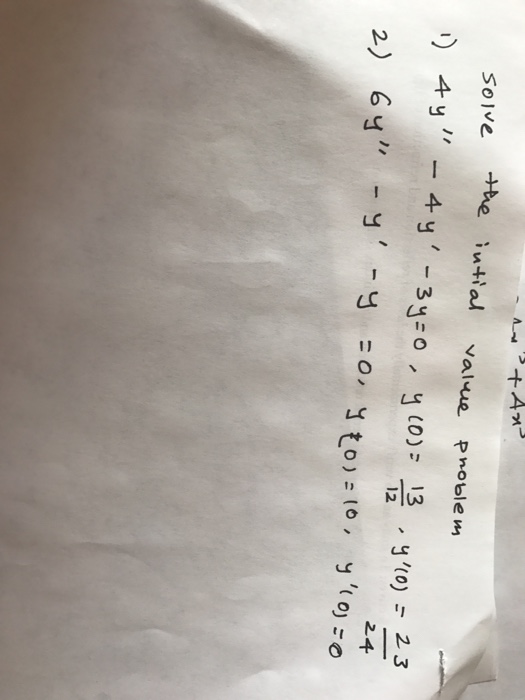 - Ax³ + Ax³
Solve the intial value problem
1) 4y'' - 4y' - 3y=0, y(0)= 13/12, y'(0) = 23/24
2) 6y'' - y' - y =0, y(0)=10, y'(0)=0